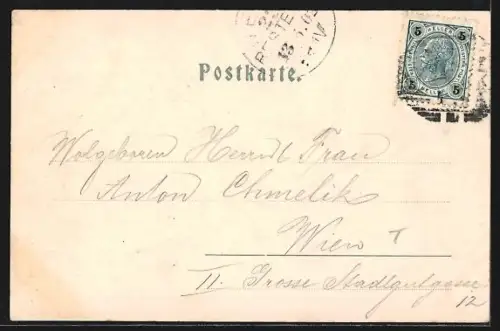 Postkarte.
5 HELLER 5
5 HELLER 5
Wolgeboren Herrn d Frau
Anton Chmelik
Wien
II. Grosse Stadtgutgasse
12